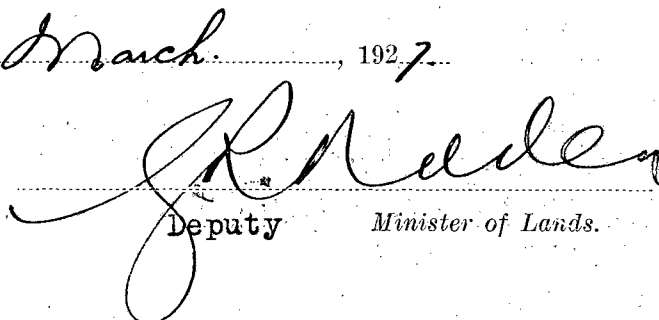 March. , 1927.
G R Naden
Deputy Minister of Lands.